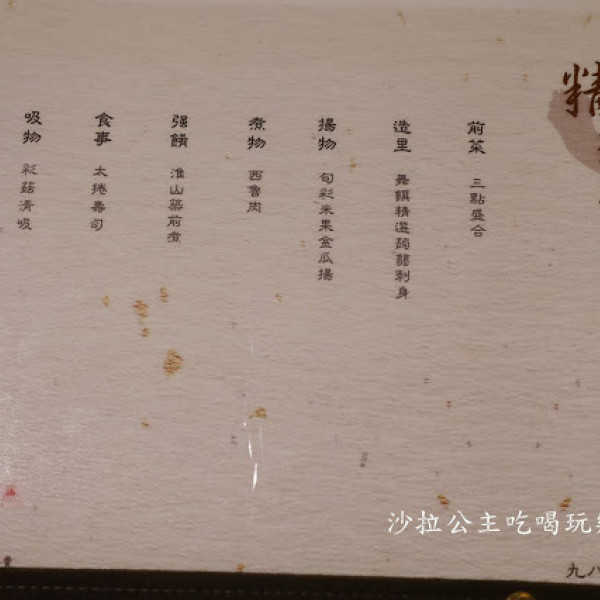 精
前菜 三點盛合
造里 舞饌精選蒟蒻刺身
揚物 旬彩米果金瓜揚
煮物 西魯肉
强餚 淮山築前煮
食事 太捲壽司
吸物 彩菇清吸
九八
沙拉公主吃喝玩樂